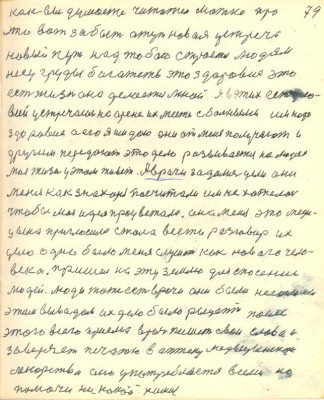 79
как вы думаете читать можно про
это вот забыт а тут новая устреча
новый путь над тобою строится людям
несу груды богатств это здоровие это
есть жизнь она делается мной я в этих
вей устречались на арене их место с больными им надо
здоровие а его я им даю они от меня получают и
другим передают это дело развивается на людях
моя жизнь у этом живет. А врачи задались цели они
меня как знахоря посчитали им не хотелось
чтобы моя идея процветала. она меня это меди-
цына пригласила стала вести разговор их
дело одно было меня слушать как нового чело-
века. пришлого на эту землю для спасение
людей. люди то есть врочи они были
этим выводом их дело было рецепт после
этого всего приема врач пишет свои слова и
заверяет печатью в аптеку медецинское
лекарства оно употребляется всеми но
помочи ни какой